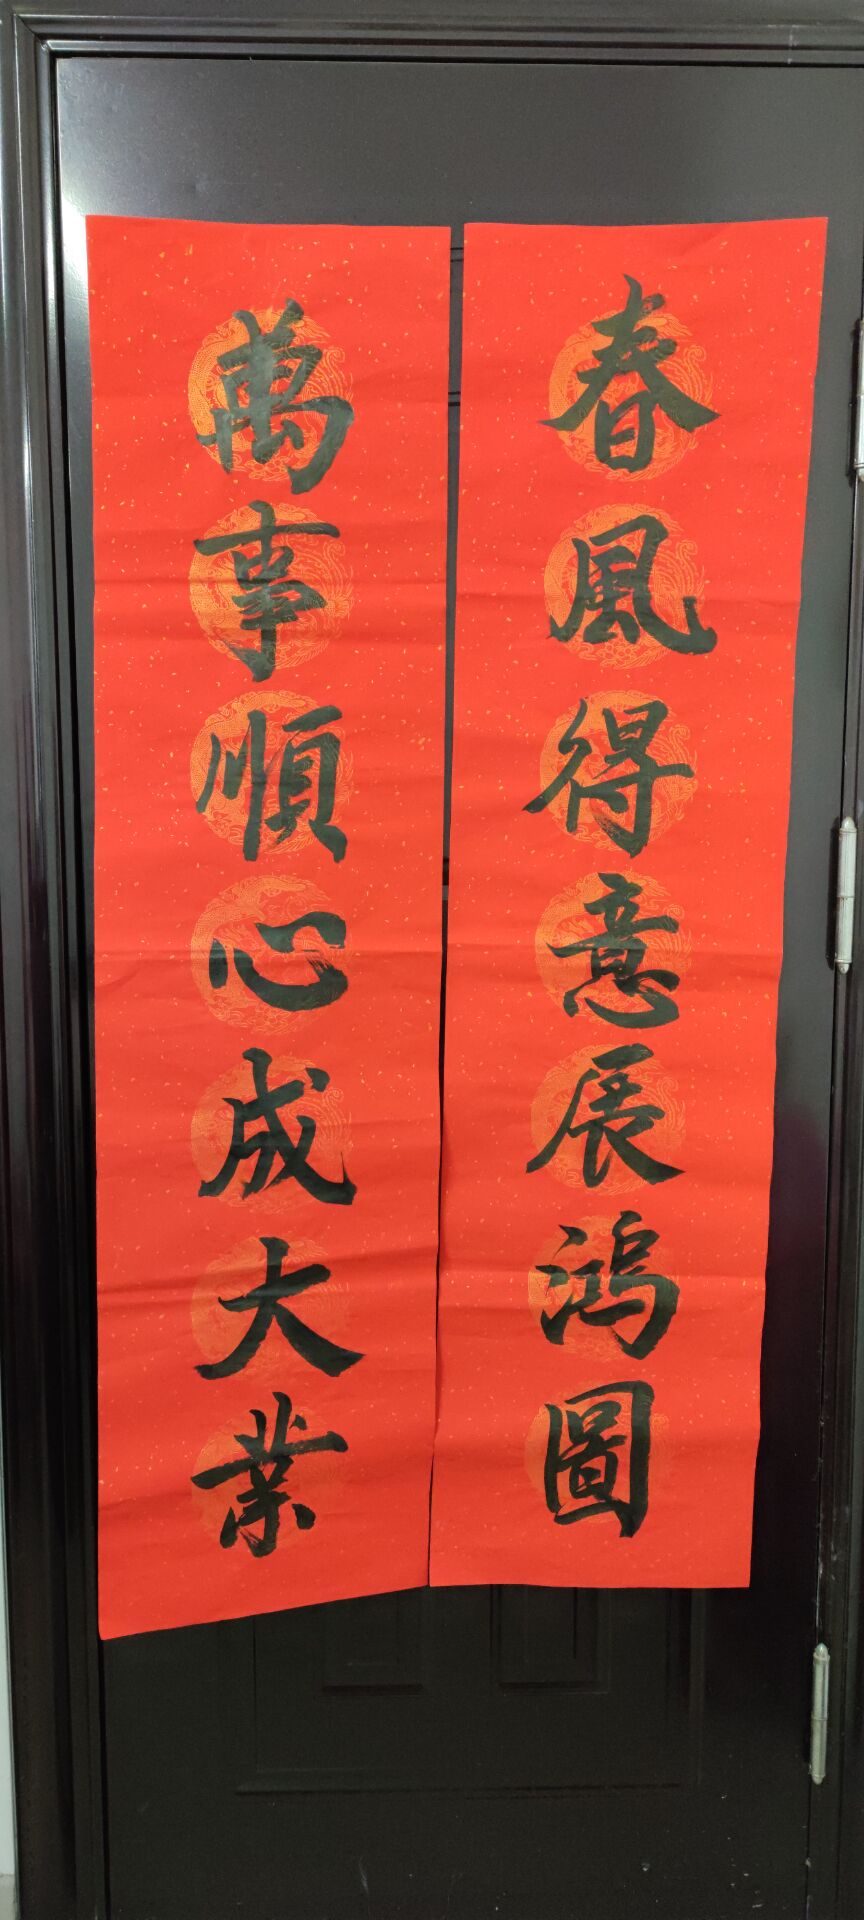 春風得意展鴻圖
萬事順心成大業